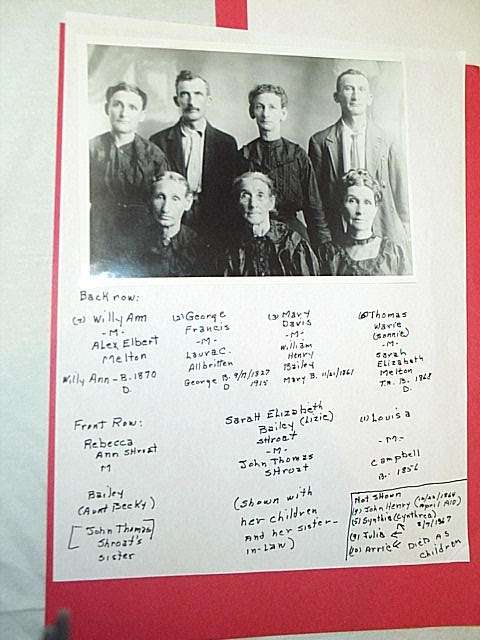 Back row:
(7) Willy Ann
-M-
Alex Elbert
Melton
Willy Ann - B. 1870
D.
(2) George
Francis
-M-
Laura C.
Allbritten
George B. 9/7/1827
D 1915
(3) Mary
Davis
-M-
William
Henry
Bailey
Mary B. 11/21/1861
(6) Thomas
Warie
(Sonnie)
-M-
Sarah
Elizabeth
Melton
T.W. B. 1868
D.
Front Row:
Rebecca
Ann Shroat
M
Bailey
(Aunt Becky)
[John Thomas
Shroat's
Sister]
Sarah Elizabeth
Bailey (Lizie)
Shroat
-M-
John Thomas
Shroat
(Shown with
her children
And her sister-
in-law)
(1) Louisa
-M-
Campbell
B. 1856
Not Shown
(4) John Henry (10/20/1864
April 1910)
(5) Synthia (Cynthrea)
8/9/1867
(9) Julia
(10) Arrie
Died As
Children